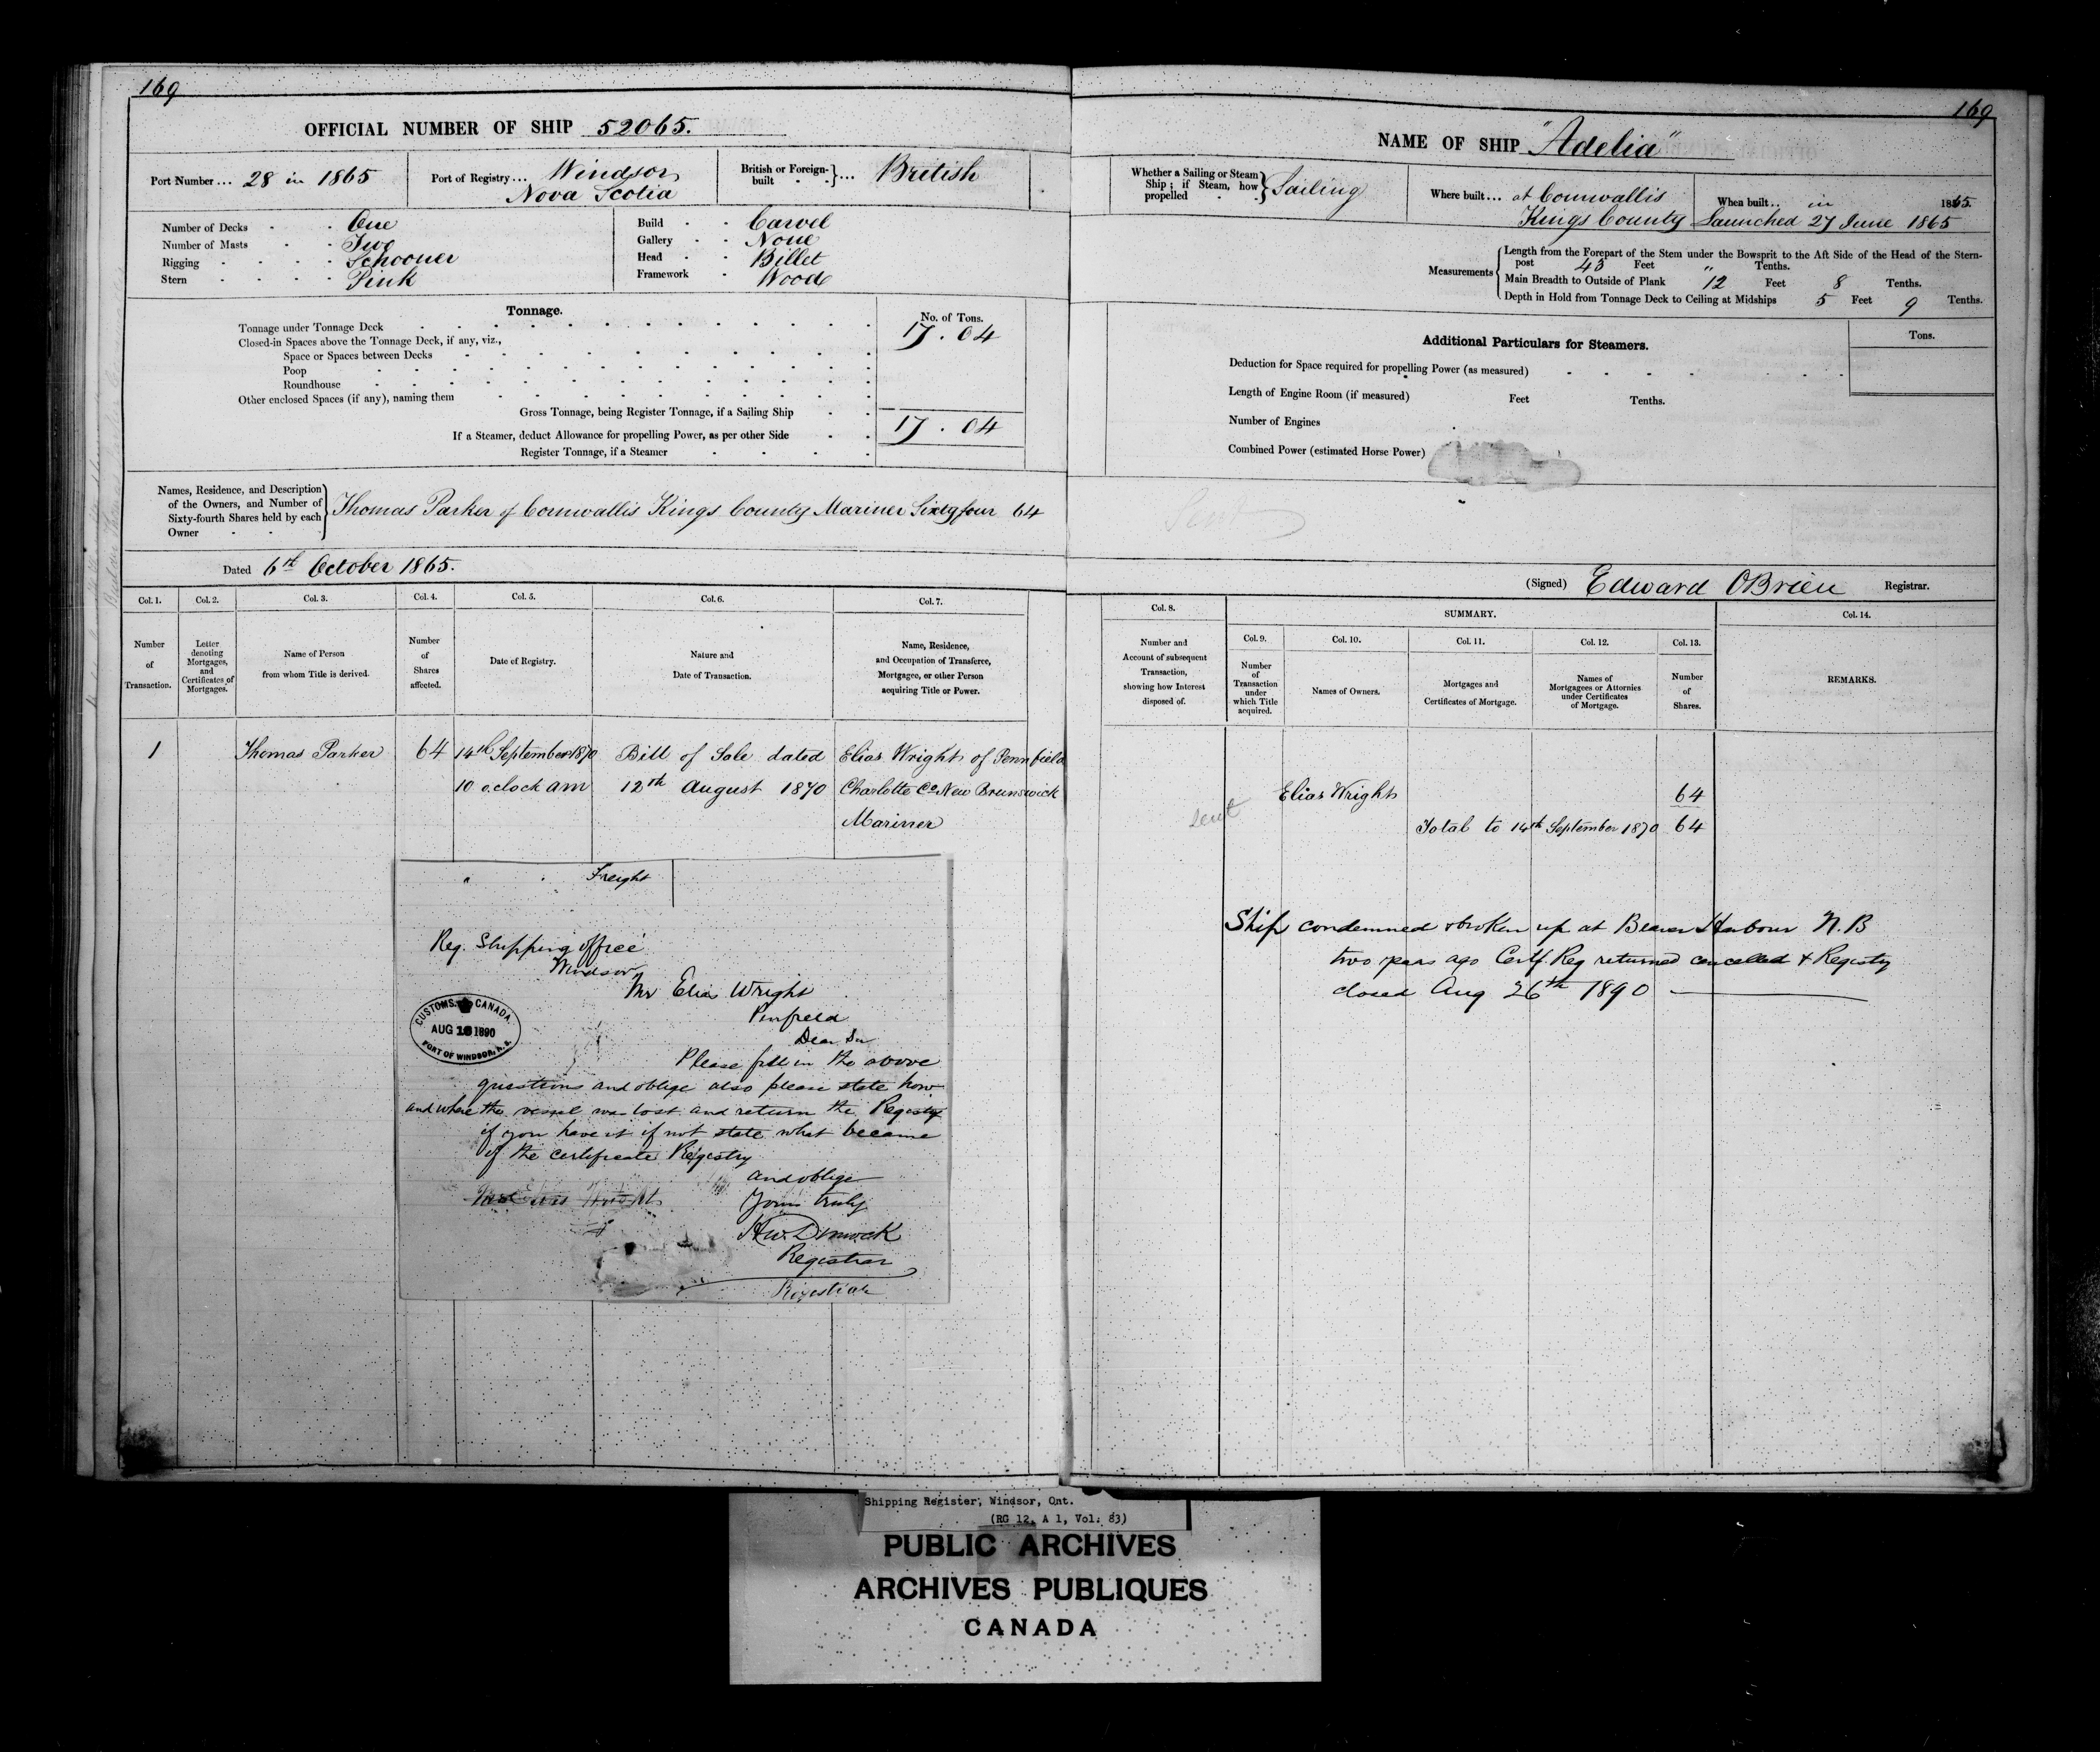 169
OFFICIAL NUMBER OF SHIP 52065.
Port Number ... 28 in 1865
Port of Registry ... Windsor
Nova Scotia
British or Foreign-
built ... British
Number of Decks One
Number of Masts Two
Rigging Schooner
Stern Pink
Build Carvel
Gallery None
Head Billet
Framework Wood
Tonnage.
No. of Tons.
Tonnage under Tonnage Deck 17.04
Closed-in Spaces above the Tonnage Deck, if any, viz.,
Space or Spaces between Decks
Poop
Roundhouse
Other enclosed Spaces (if any), naming them
Gross Tonnage, being Register Tonnage, if a Sailing Ship
17.04
If a Steamer, deduct Allowance for propelling Power, as per other Side
Register Tonnage, if a Steamer
Names, Residence, and Description
of the Owners, and Number of
Sixty-fourth Shares held by each
Owner
Thomas Parker of Cornwallis Kings County Mariner Sixty four 64
Dated 6th October 1865.
Col. 1. Col. 2. Col. 3. Col. 4. Col. 5. Col. 6. Col. 7.
Number
of
Transaction.
Letter
denoting
Mortgages,
and
Certificates of
Mortgages.
Name of Person
from whom Title is derived.
Number
of
Shares
affected.
Date of Registry.
Nature and
Date of Transaction.
Name, Residence,
and Occupation of Transferee,
Mortgagee, or other Person
acquiring Title or Power.
1 Thomas Parker 64 14th September 1870 Bill of Sale dated Elias Wright of Pennfield
10 o,clock am 12th August 1870 Charlotte Co New Brunswick
Mariner
Freight
Reg. Shipping office
Windsor
Mr Elias Wright
Penfield
Dear Sir
Please fill in the above
questions and oblige also please state how
and where the vessel was lost and return the Registry
if you have it if not state what became
of the certificate Registry
and oblige
Yours truly
H.W. Dimock
Registrar
Registrar
CUSTOMS. CANADA.
AUG 18 1890
PORT OF WINDSOR, N.S.
169
NAME OF SHIP "Adelia"
Whether a Sailing or Steam
Ship; if Steam, how
propelled
Sailing
Where built ... at Cornwallis
Kings County
When built .. in 1865
Launched 27 June 1865
Measurements
Length from the Forepart of the Stem under the Bowsprit to the Aft Side of the Head of the Stern-
post 43 Feet " Tenths.
Main Breadth to Outside of Plank 12 Feet 8 Tenths.
Depth in Hold from Tonnage Deck to Ceiling at Midships 5 Feet 9 Tenths.
Additional Particulars for Steamers.
Tons.
Deduction for Space required for propelling Power (as measured)
Length of Engine Room (if measured) Feet Tenths.
Number of Engines
Combined Power (estimated Horse Power)
(Signed) Edward OBrien Registrar.
Col. 8.
SUMMARY.
Col. 14.
Col. 9. Col. 10. Col. 11. Col. 12. Col. 13.
Number and
Account of subsequent
Transaction,
showing how Interest
disposed of.
Number
of
Transaction
under
which Title
acquired.
Names of Owners.
Mortgages and
Certificates of Mortgage.
Names of
Mortgagees or Attornies
under Certificates
of Mortgage.
Number
of
Shares.
REMARKS.
Elias Wright 64
sent
Total to 14th September 1870 64
Ship condemned & broken up at Beaver Harbour N.B
two years ago Certf. Reg returned cancelled & Registry
closed Aug 26th 1890
Shipping Register, Windsor, Ont.
(RG 12, A 1, Vol. 83)
PUBLIC ARCHIVES
ARCHIVES PUBLIQUES
CANADA